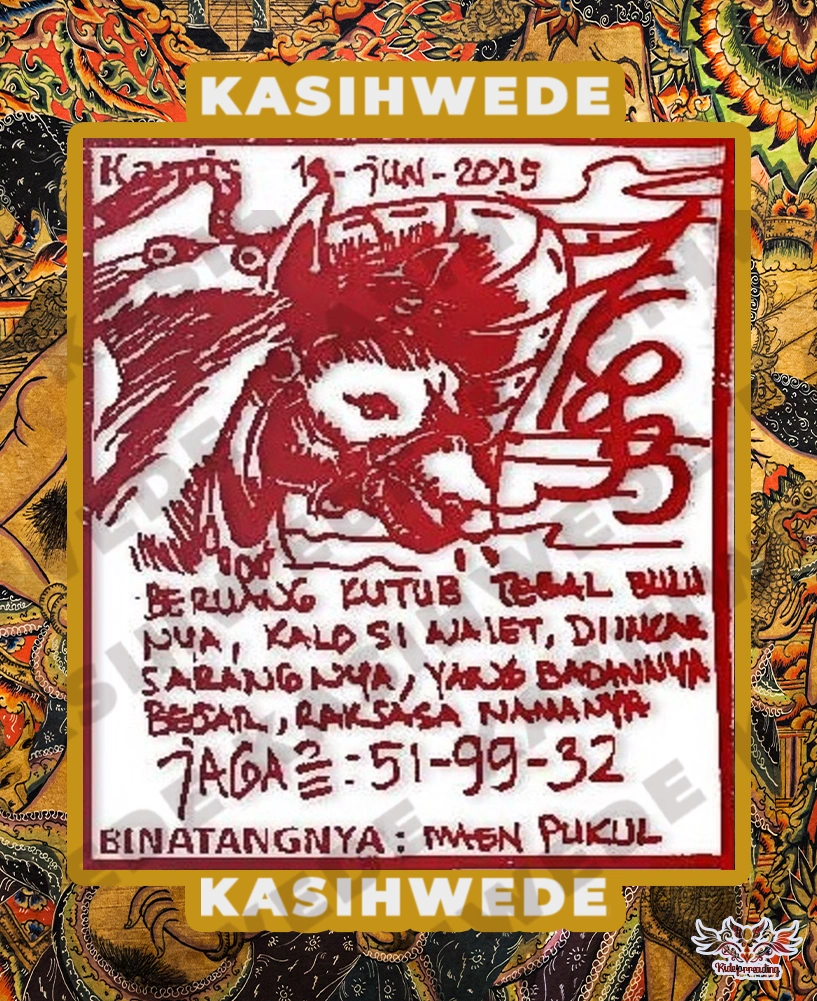 KASIHWEDE
Kamis 19-JUN-2025
BERUANG KUTUB TEBAL BULU
NYA, KALO SI WALET, DI INCAR
SARANG NYA, YANG BADANNYA
BESAR, RAKSASA NAMANYA
JAGA2 : 51-99-32
BINATANGNYA : MAEN PUKUL
KASIHWEDE